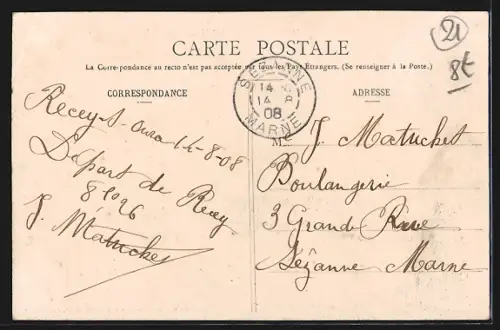 21
8€
CARTE POSTALE
La Correspondance au recto n'est pas acceptée par tous les Pays Étrangers. (Se renseigner à la Poste.)
CORRESPONDANCE
ADRESSE
SÉZANNE
14 8
08
MARNE
Recey-s-Ource 14-8-08
Départ de Recey
8h26
J. Matuchet
M J. Matuchet
Boulangerie
3 Grande Rue
Sézanne Marne